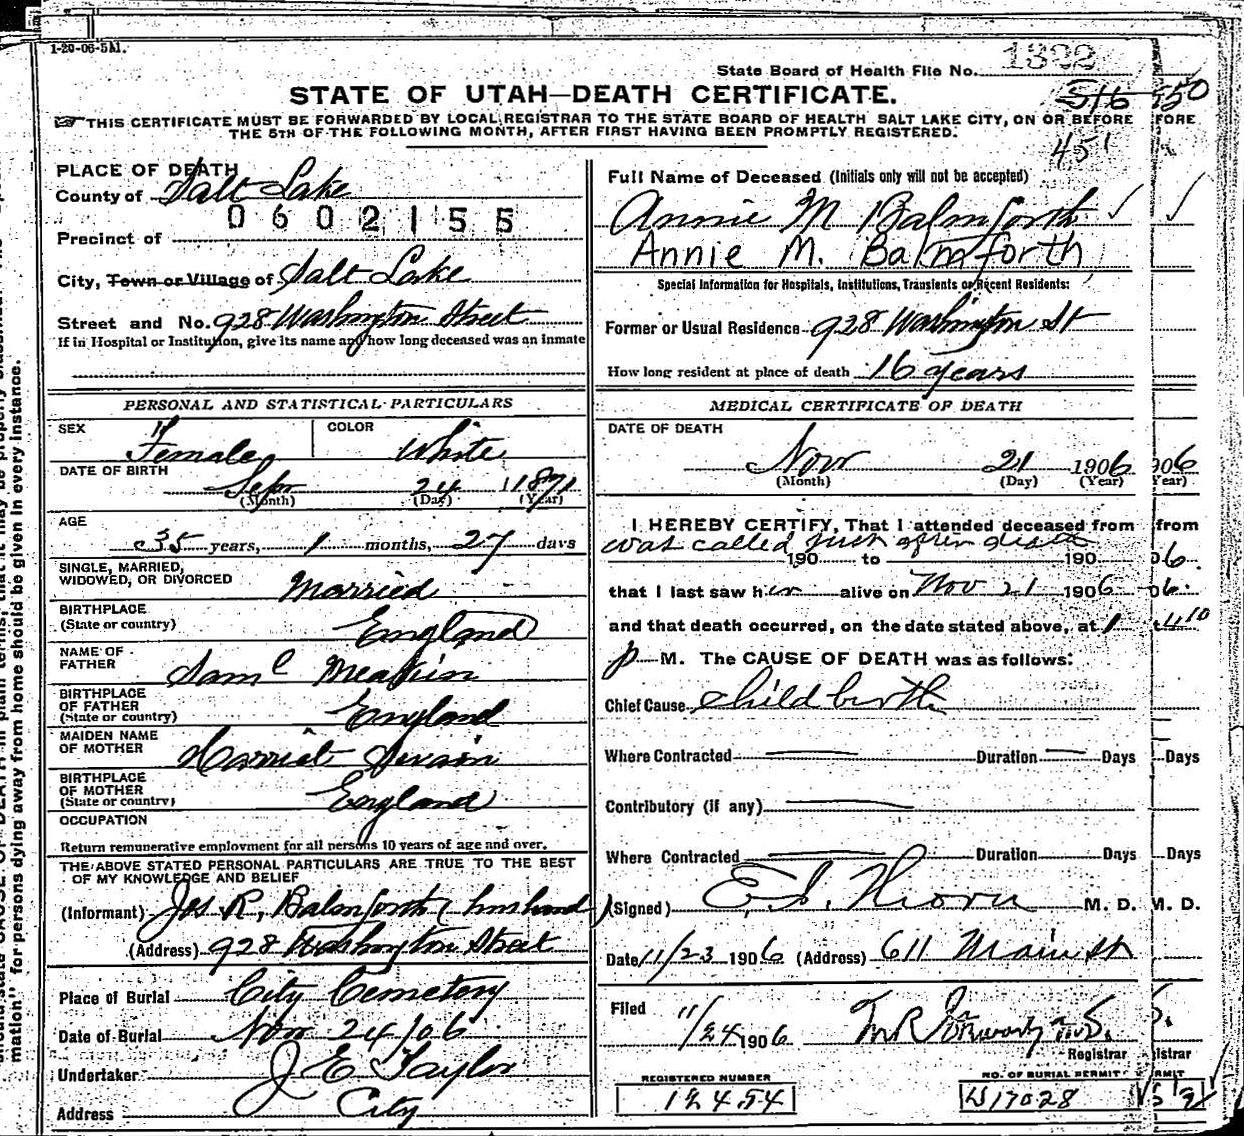 1-20-06-5M.
State Board of Health File No. 1392
STATE OF UTAH—DEATH CERTIFICATE.
516 550
THIS CERTIFICATE MUST BE FORWARDED BY LOCAL REGISTRAR TO THE STATE BOARD OF HEALTH SALT LAKE CITY, ON OR BEFORE FORE
THE 5TH OF THE FOLLOWING MONTH, AFTER FIRST HAVING BEEN PROMPTLY REGISTERED.
451
PLACE OF DEATH
County of Salt Lake
0602155
Precinct of
City, Town or Village of Salt Lake
Street and No. 928 Washington Street
If in Hospital or Institution, give its name and how long deceased was an inmate
Full Name of Deceased (Initials only will not be accepted)
Annie M Balmforth ✓ ✓
Annie M. Balmforth
Special Information for Hospitals, Institutions, Transients or Recent Residents:
Former or Usual Residence 928 Washington St
How long resident at place of death 16 years
PERSONAL AND STATISTICAL PARTICULARS
SEX Female COLOR White
DATE OF BIRTH Sepr 24 1871
(Month) (Day) (Year)
AGE 35 years, 1 months, 27 days
SINGLE, MARRIED,
WIDOWED, OR DIVORCED Married
BIRTHPLACE
(State or country) England
NAME OF
FATHER Saml Meakin
BIRTHPLACE
OF FATHER
(State or country) England
MAIDEN NAME
OF MOTHER Harriet Swain
BIRTHPLACE
OF MOTHER
(State or country) England
OCCUPATION
Return remunerative employment for all persons 10 years of age and over.
THE ABOVE STATED PERSONAL PARTICULARS ARE TRUE TO THE BEST
OF MY KNOWLEDGE AND BELIEF
(Informant) Jos R. Balmforth (husband)
(Address) 928 Washington Street
Place of Burial City Cemetery
Date of Burial Nov 24/06
Undertaker J E Taylor
Address City
MEDICAL CERTIFICATE OF DEATH
DATE OF DEATH
Nov 21 1906 906
(Month) (Day) (Year) Year)
I HEREBY CERTIFY, That I attended deceased from from
was called just after death
190 to 190 06.
that I last saw her alive on Nov 21 1906 06.
and that death occurred, on the date stated above, at 1 t 4 10
p M. The CAUSE OF DEATH was as follows:
Chief Cause child birth
Where Contracted Duration Days Days
Contributory (if any)
Where Contracted Duration Days Days
(Signed) M. D. M. D.
Date 11/23 1906 (Address) 611 Main st
Filed 11/24 1906
Registrar istrar
REGISTERED NUMBER
12454
NO. OF BURIAL PERMIT RMIT
mation" for persons dying away from home should be given in every instance.